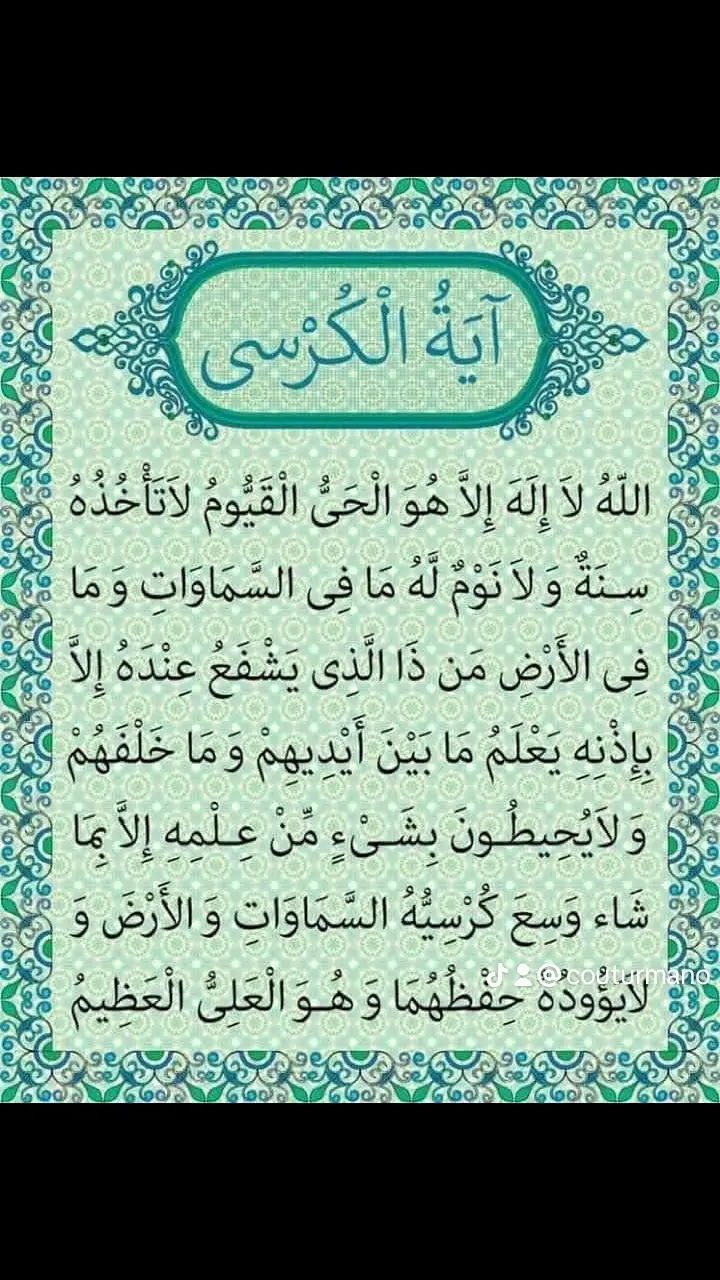 آيَةُ الْكُرْسى
اللّهُ لاَ إِلَهَ إِلاَّ هُوَ الْحَىُّ الْقَيُّومُ لاَتَأْخُذُهُ
سِـنَةٌ وَ لاَ نَوْمٌ لَّهُ مَا فِى السَّمَاوَاتِ وَ مَا
فِى الأَرْضِ مَن ذَا الَّذِى يَشْفَعُ عِنْدَهُ إِلاَّ
بِإِذْنِهِ يَعْلَمُ مَا بَيْنَ أَيْدِيهِمْ وَ مَا خَلْفَهُمْ
وَ لاَيُحِيطُـونَ بِشَـىْءٍ مِّنْ عِـلْمِهِ إِلاَّ بِمَا
شَاء وَسِعَ كُرْسِيُّهُ السَّمَاوَاتِ وَ الأَرْضَ وَ
لاَيَؤُودُهُ حِفْظُهُمَا وَ هُـوَ الْعَلِىُّ الْعَظِيمُ
@couturmano